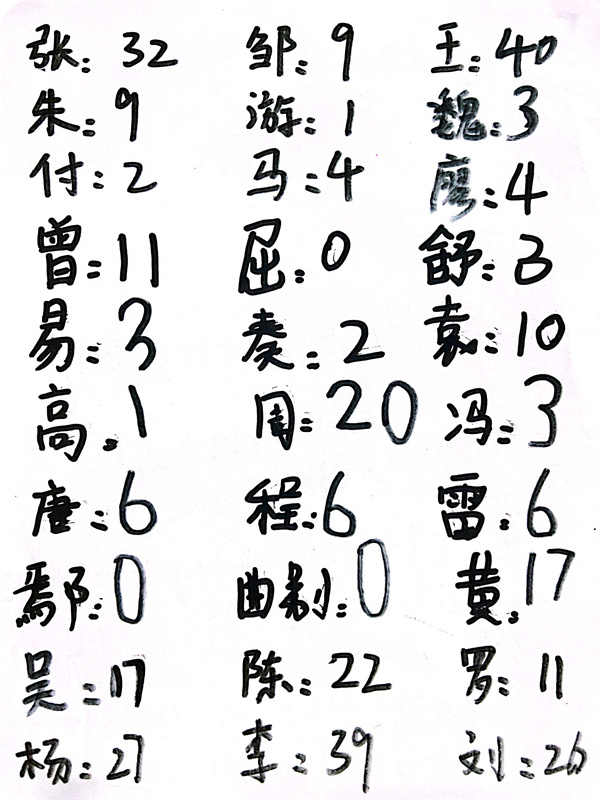 张：32 邹：9 王：40
朱：9 游：1 魏：3
付：2 马：4 廖：4
曾：11 屈：0 舒：3
易：3 奏：2 袁：10
高：1 周：20 冯：3
唐：6 程：6 雷：6
鄢：0 曲别：0 黄：17
吴：17 陈：22 罗：11
杨：27 李：39 刘：26